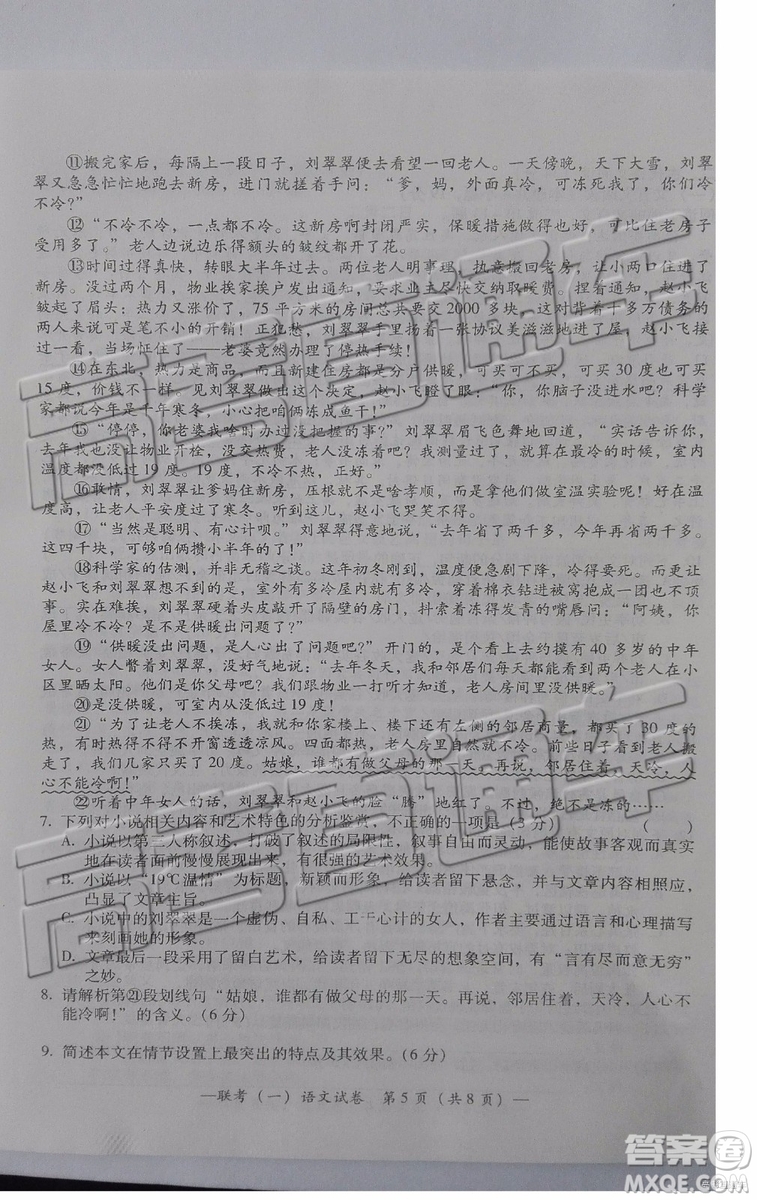 ⑪搬完家后，每隔上一段日子，刘翠翠便去看望一回老人。一天傍晚，天下大雪，刘翠
翠又急急忙忙地跑去新房，进门就搓着手问：“爹，妈，外面真冷，可冻死我了，你们冷
不冷？”
⑫“不冷不冷，一点都不冷。这新房啊封闭严实，保暖措施做得好，可比住老房子
受用多了。”老人边说边乐得额头的皱纹都开了花。
⑬时间过得真快，转眼大半年过去。两位老人明事理，执意搬回老房，让小两口住进新
房。没过两个月，物业挨家挨户发出通知，要求业主尽快交纳取暖费。捏着通知，赵小飞
皱起了眉头：热力又涨价了，75 平方米的房间总共要交 2000 多块，这对背着十多万债务的
两人来说可是笔不小的开销！正犯愁，刘翠翠手里扬着一张协议美滋滋地进了屋，赵小飞接
过一看，当场怔住了——老婆竟然办理了停热手续！
⑭在东北，热力是商品，而且新建住房都是分户供暖，可买可不买，可买 30 度也可买
15 度，价钱不一样。见刘翠翠做出这个决定，赵小飞瞪了眼：“你，你脑子没进水吧？科学
家都说今年是千年寒冬，小心把咱俩冻成鱼干！”
⑮“停停，你老婆我啥时办过没把握的事？”刘翠翠眉飞色舞地回道，“实话告诉你，
去年我也没让物业开栓，没交热费，老人没冻着吧？我测量过了，就在最冷的时候，室内
温度都没低过 19 度。19 度，不冷不热，正好。”
⑯敢情，刘翠翠让爹妈住新房，压根就不是啥孝顺，而是让他们做室温实验呢！好在温
度高，让老人平安度过了寒冬。听到这儿，赵小飞哭笑不得。
⑰“当然是聪明、有心计呗。”刘翠翠得意地说，“去年省了两千多，今年再省两千多。
这四千块，可够咱俩攒小半年的了！”
⑱科学家的估测，并非无稽之谈。这年初冬刚到，温度便急剧下降，冷得要死。更让
赵小飞和刘翠翠想不到的是，室外有多冷屋内就有多冷，穿着棉衣钻进被窝捂也捂不下项
事。实在难挨，刘翠翠硬着头皮敲开了隔壁的房门，抖索着冻得发青的嘴唇问：“阿姨，你
屋里冷不冷？是不是供暖出问题了？”
⑲“供暖没出问题，是人心出了问题！”开门的，是个看上去约摸有 40 多岁的中年
女人。女人瞥着刘翠翠，没好气地说：“去年冬天，我和邻居们每天都能看到老人在小
区里晒太阳。他们是你父母吧？我们跟物业一打听才知道，老人房间里没供暖。”
⑳是没供暖，可室内从没低过 19 度！
㉑“为了让老人不挨冻，我和你家楼上、楼下还有左侧的邻居商量，都买了 30 度的
热，有年轻人的屋子热得不得不开窗透透凉风。四面都热，老人房里自然就不冷。前些日子看到老人搬
走了，我们几家只买了 20 度。姑娘，谁都有做父母的那一天。再说，邻居住着，天冷，人
心不能冷啊！”
㉒听着中年女人的话，刘翠翠和赵小飞的脸“腾”地红了。不过，绝不是冻的……
7. 下列对小说相关内容和艺术特色的分析鉴赏，不正确的一项是（3 分） （ ）
A. 小说以第三人称叙述，打破了叙述的局限性，叙事自由而灵活，使故事客观而真实
地在读者面前慢慢展现出来，有很强的艺术效果。
B. 小说以“19℃温情”为标题，新颖而形象，给读者留下悬念，并与文章内容相呼应，
凸显了文章主旨。
C. 小说中的刘翠翠是一个虚伪、自私、工于心计的女人，作者主要通过语言和心理描写
来刻画她的形象。
D. 文章最后一段采用了留白艺术，给读者留下无尽的想象空间，有“言有尽而意无穷”
之妙。
8. 请解析第㉑段划线句“姑娘，谁都有做父母的那一天。再说，邻居住着，天冷，人心不
能冷啊！”的含义。（6 分）
9. 简述本文在情节设置上最突出的特点及其效果。（6 分）
—联考（一）语文试卷 第 5 页（共 8 页）—
高考直通车
高考直通车
高考直通车
答案圈
MXQE.COM